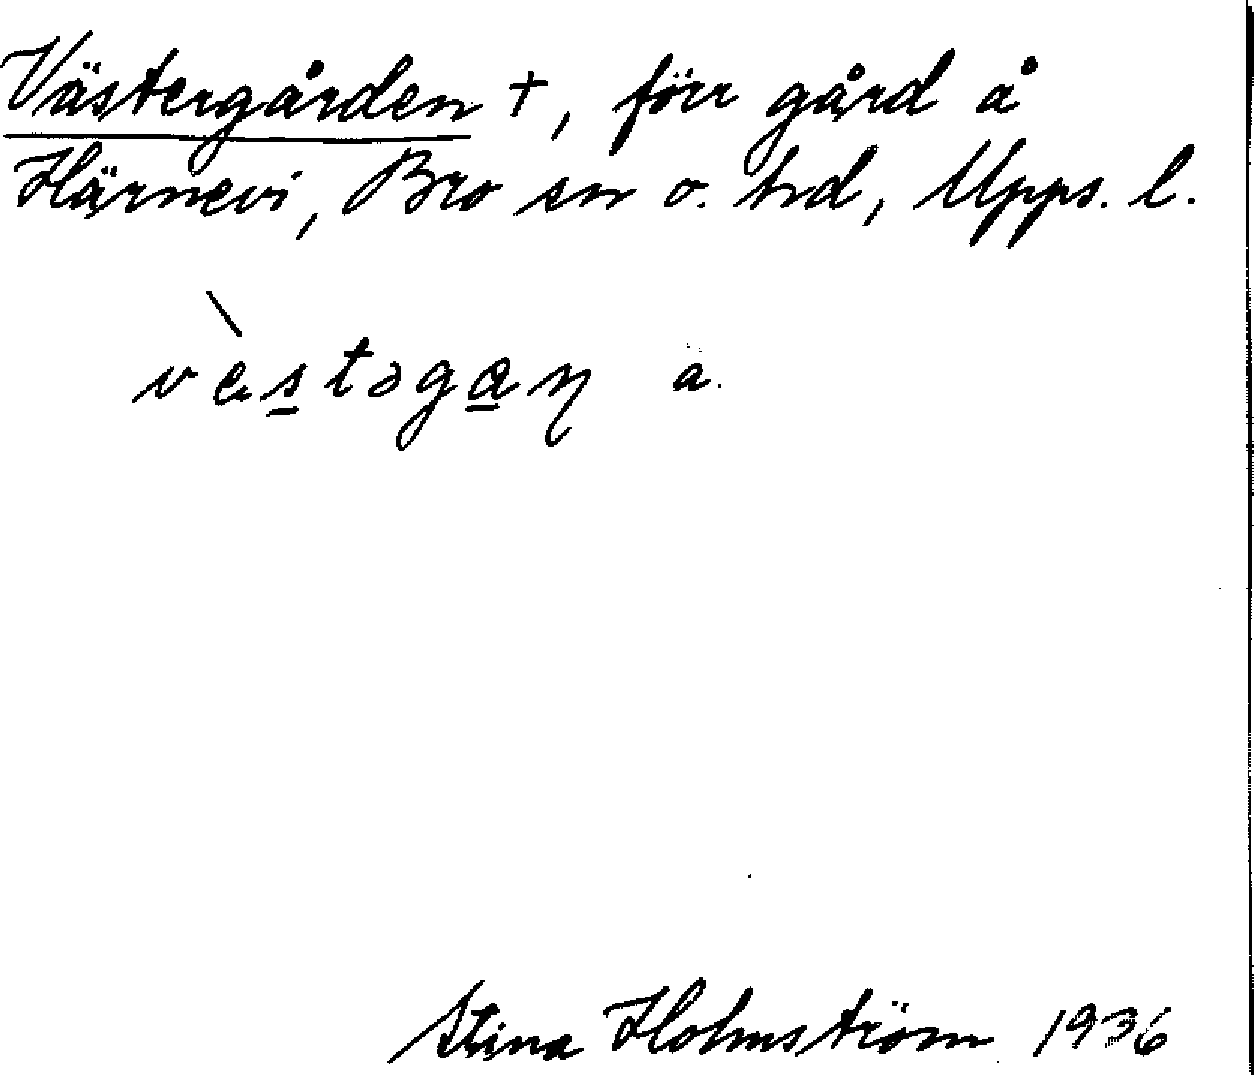 Västergården +, förr gård å
Härnevi, Bro sn o. hd, Upps. l.
vὲstəgaɳ a.
Stina Holmström 1936